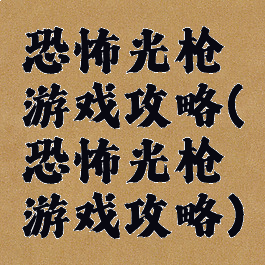 恐怖光枪
游戏攻略(
恐怖光枪
游戏攻略)